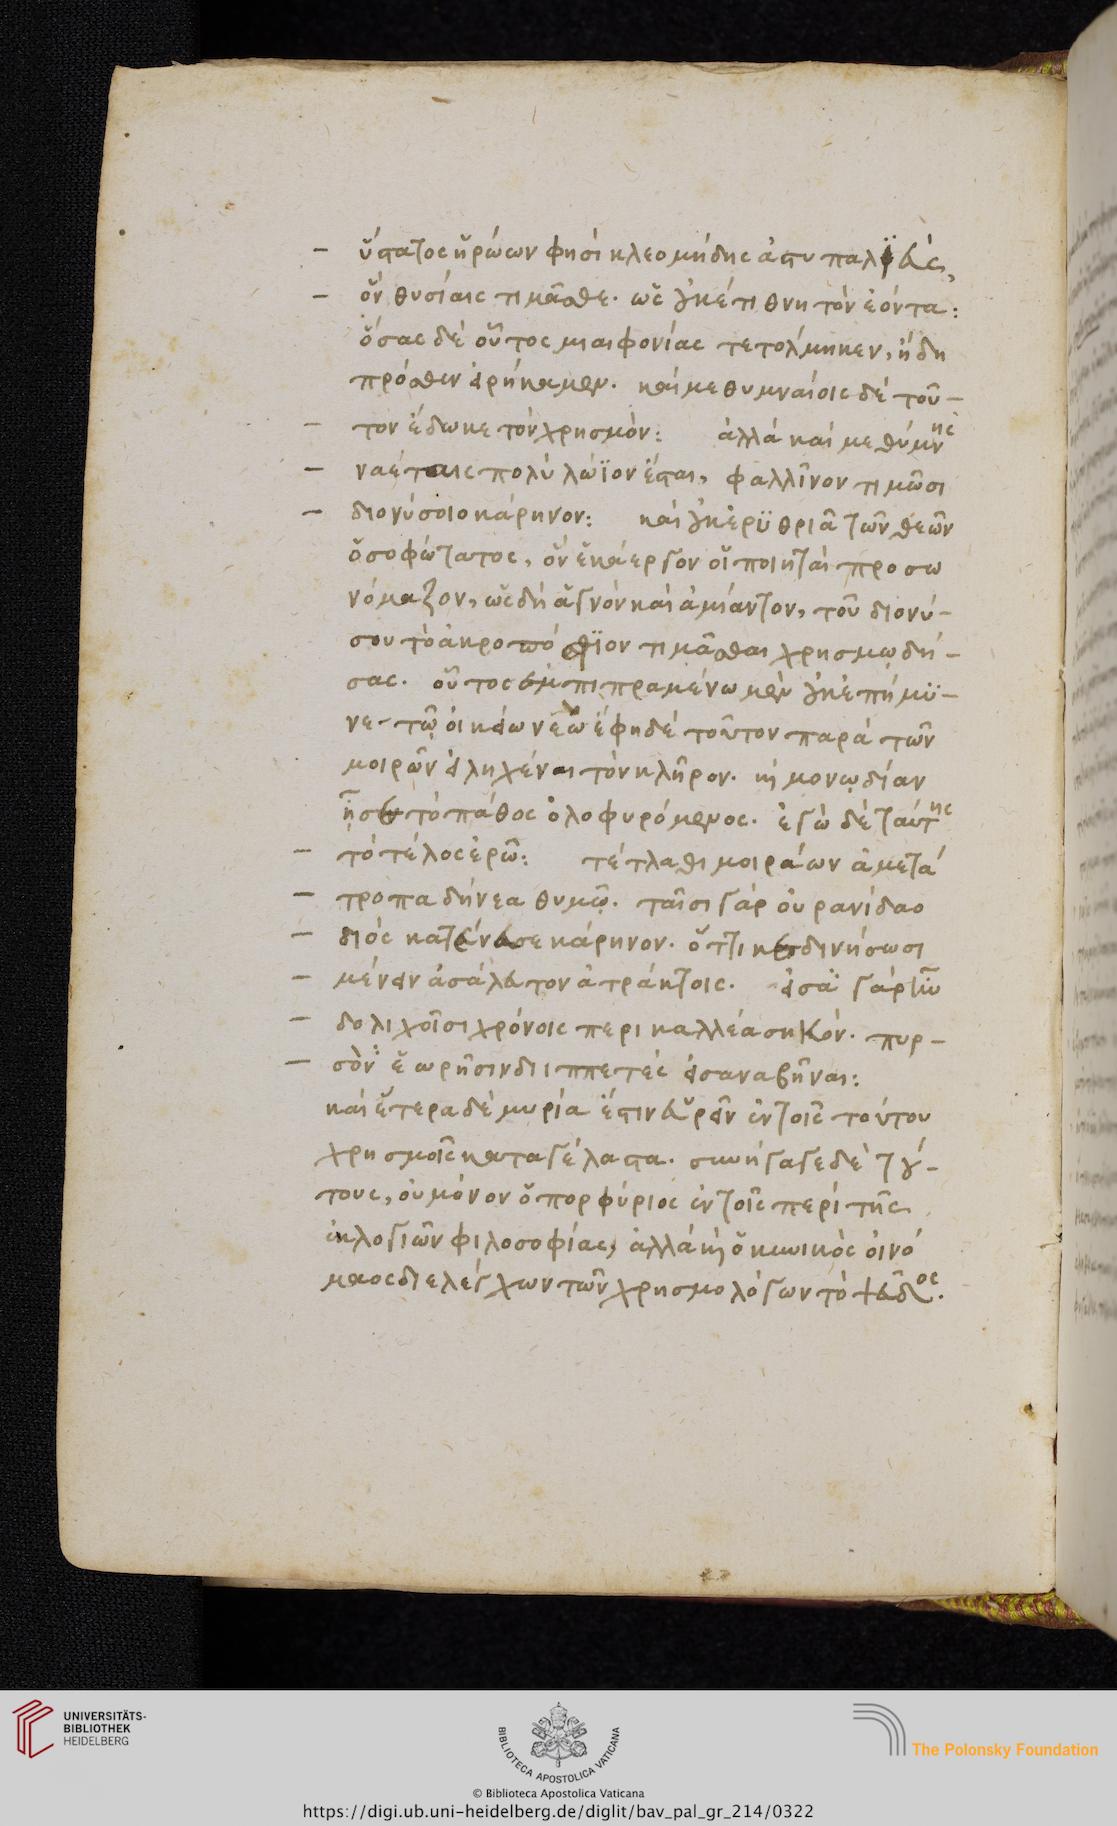 – ὕστατος ἡρώων φησὶ κλεομήδης ἀστυπαλαιεὺς,
– ὃν θυσίαις τιμᾶσθε. ὡς οὐκέτι θνητὸν ἐόντα:
ὅσας δὲ οὗτος μιαιφονίας τετόλμηκεν, ἤδη
πρόσθεν εἰρήκαμεν. καὶ μεθυμναίοις δὲ τοῦ–
– τον ἔδωκε τὸν χρησμὸν: ἀλλὰ καὶ μεθύμνης
– ναέταις πολὺ λώϊον ἔσται, φαλλῖνον τιμῶσι
– διονύσοιο κάρηνον: καὶ οὐκ ἐρυθριᾷ τῶν θεῶν
ὁ σοφώτατος, ὃν ἑκάεργον οἱ ποιηταὶ προσω
νόμαζον, ὡς δὴ ἁγνὸν καὶ ἀμίαντον, τοῦ διονύ–
σου τὸ ἀκροπόσθϊον τιμᾶσθαι χρησμῳδή–
σας. οὗτος ἐμπιπραμένω μὲν οὐκ ἐπήμυ–
νε τῷ οἰκείω νεῲ ἔφη δὲ τοῦτον παρὰ τῶν
μοιρῶν εἰληχέναι τὸν κλῆρον. καὶ μονωδίαν
ᾖσε τὸ πάθος ὀλοφυρόμενος. ἐγὼ δὲ ταύτης
– τὸ τέλος ἐρῶ: τέτλαθι μοιράων ἀμετά
– τροπα δήνεα θυμῷ. ταῖσι γὰρ οὐρανίδαο
– διὸς κατένευσε κάρηνον. ὅττι κε δινήσωσι
– μένειν ἀσάλευτον ἀτράκτοις. εἶσα γὰρ ἦν
– δολιχοῖσι χρόνοις περικαλλέα σηκὸν. πυρ–
– σὸν ἑωρῆσιν διιπετέες εἰσαναβῆναι:
καὶ ἕτερα δὲ μυρία ἔστιν εὑρεῖν ἐν τοῖς τούτου
χρησμοῖς καταγέλαστα. συνήγαγε δὲ τού–
τους, οὐ μόνον ὁ πορφύριος ἐν τοῖς περὶ τῆς
ἐκλογιῶν φιλοσοφίας, ἀλλὰ καὶ ὁ κυνικὸς οἰνό
μαος διελέγχων τῶν χρησμολόγων τὸ ψεῦδος.
UNIVERSITÄTS-
BIBLIOTHEK
HEIDELBERG
BIBLIOTECA APOSTOLICA VATICANA
The Polonsky Foundation
© Biblioteca Apostolica Vaticana
https://digi.ub.uni-heidelberg.de/diglit/bav_pal_gr_214/0322